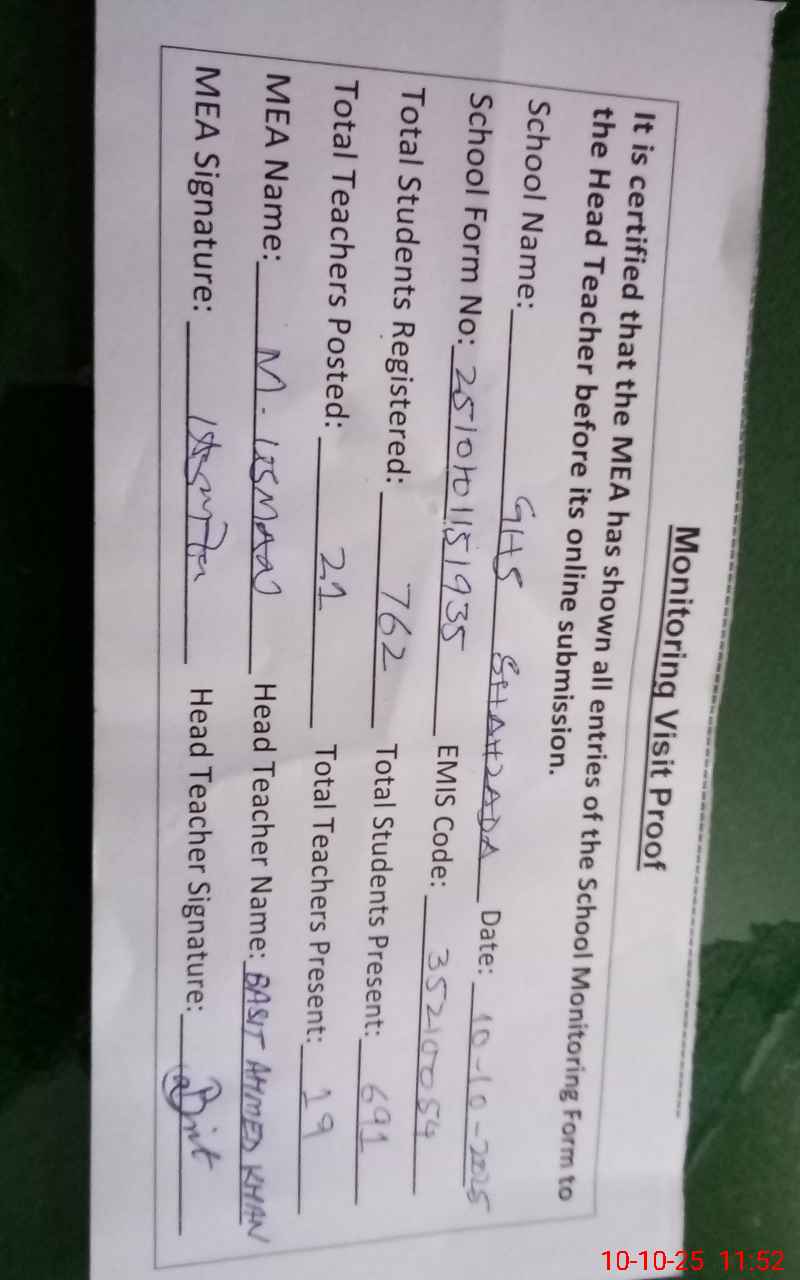 Monitoring Visit Proof
It is certified that the MEA has shown all entries of the School Monitoring Form to
the Head Teacher before its online submission.
School Name: GHS SHAHZADA Date: 10-10-2025
School Form No: 2510101151935 EMIS Code: 35210054
Total Students Registered: 762 Total Students Present: 691
Total Teachers Posted: 21 Total Teachers Present: 19
MEA Name: M. USMAN Head Teacher Name: BASIT AHMED KHAN
MEA Signature: Head Teacher Signature:
10-10-25 11:52